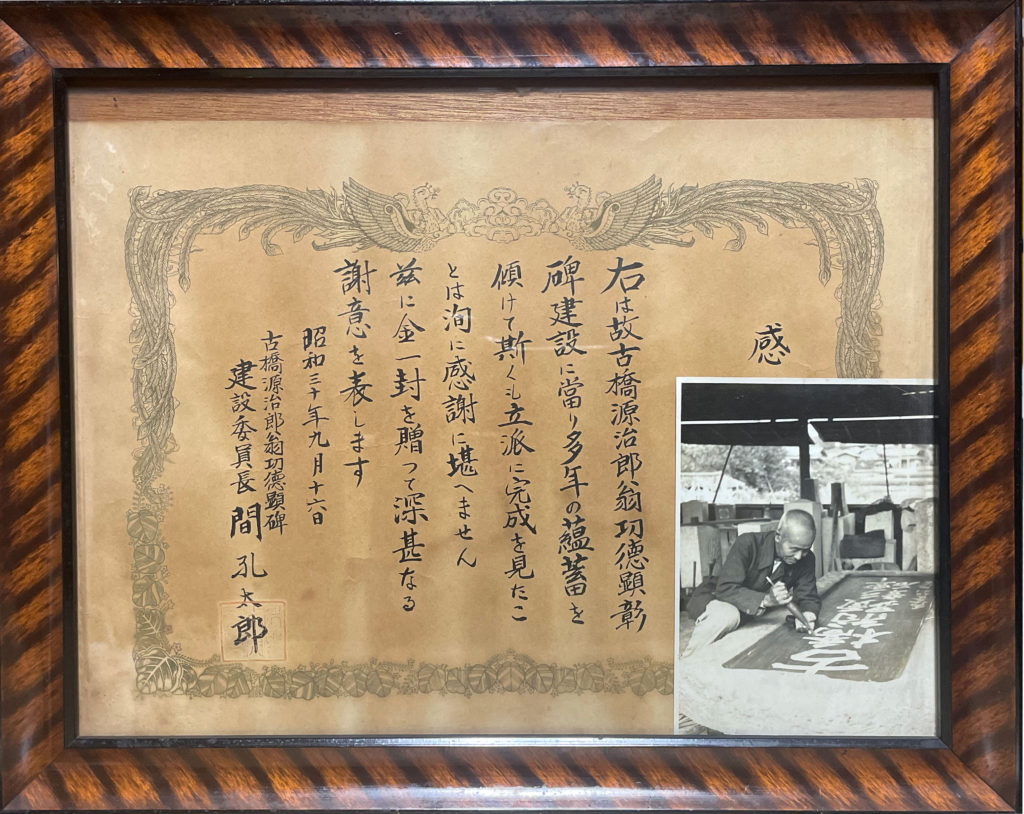 感
右は故古橋源治郎翁功德顕彰
碑建設に當り多年の蘊蓄を
傾けて斯くも立派に完成を見たこ
とは洵に感謝に堪へません
茲に金一封を贈つて深甚なる
謝意を表します
昭和三十年九月十六日
古橋源治郎翁功德顕碑
建設委員長 間孔太郎